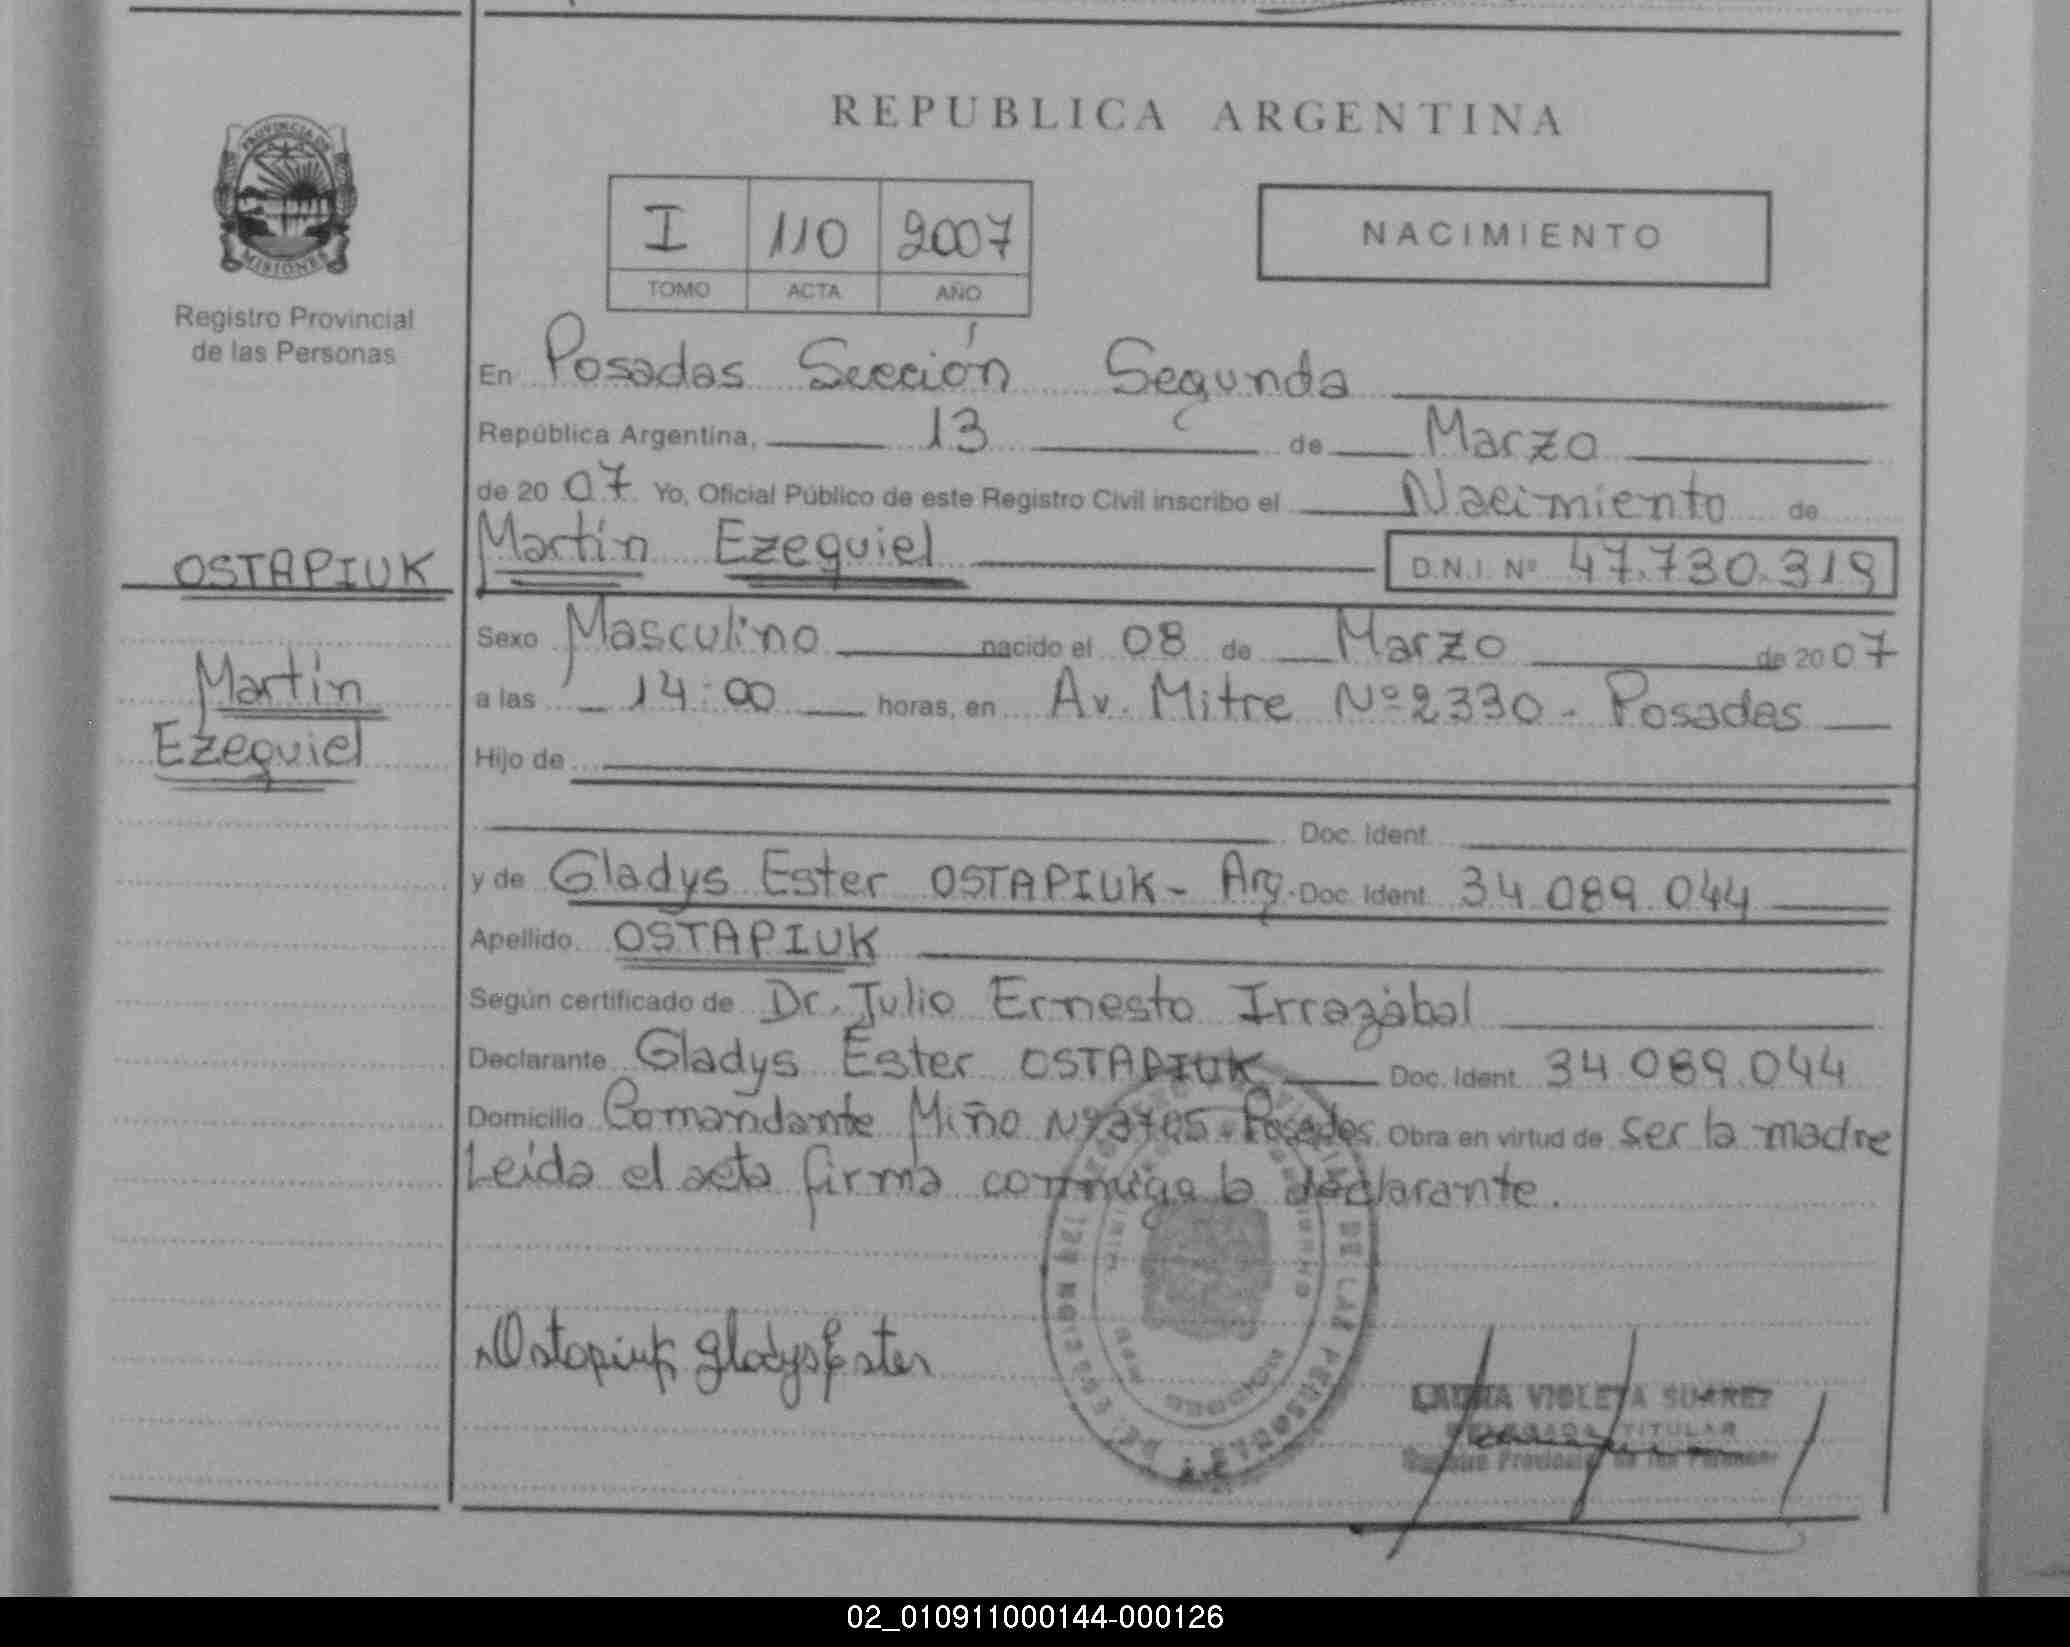 PROVINCIA DE
MISIONES
Registro Provincial
de las Personas
OSTAPIUK
Martín
Ezequiel
REPUBLICA ARGENTINA
I 110 2007
TOMO ACTA AÑO
NACIMIENTO
En Posadas Sección Segunda
República Argentina, 13 de Marzo
de 2007 Yo, Oficial Público de este Registro Civil inscribo el Nacimiento de
Martín Ezequiel D.N.I. Nº 47.730.319
Sexo Masculino nacido el 08 de Marzo de 2007
a las 14:00 horas, en Av. Mitre Nº 2330 - Posadas
Hijo de
Doc. Ident.
y de Gladys Ester OSTAPIUK - Arg. Doc. Ident. 34.089.044
Apellido OSTAPIUK
Según certificado de Dr. Julio Ernesto Irrazábal
Declarante Gladys Ester OSTAPIUK Doc. Ident. 34.089.044
Domicilio Comandante Miño Nº Posadas Obra en virtud de ser la madre
Leída el acta firma conmigo la declarante.
Ostapiuk Gladys Ester
DE LAS PERSONAS
LAURA VIOLETA SUAREZ
TITULAR
Provincial de las Personas
02_010911000144-000126